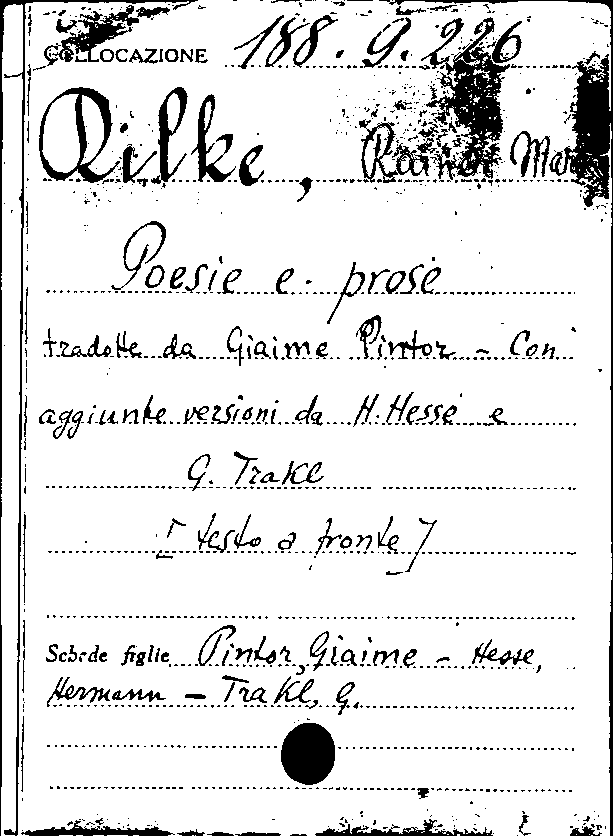 COLLOCAZIONE 188.9.226
Rilke, Rainer Mar
Poesie e prose
tradotte da Giaime Pintor - Con
aggiunte versioni da H. Hesse e
G. Trakl
[testo a fronte]
Schede figlie Pintor, Giaime - Hesse,
Hermann - Trakl, G.